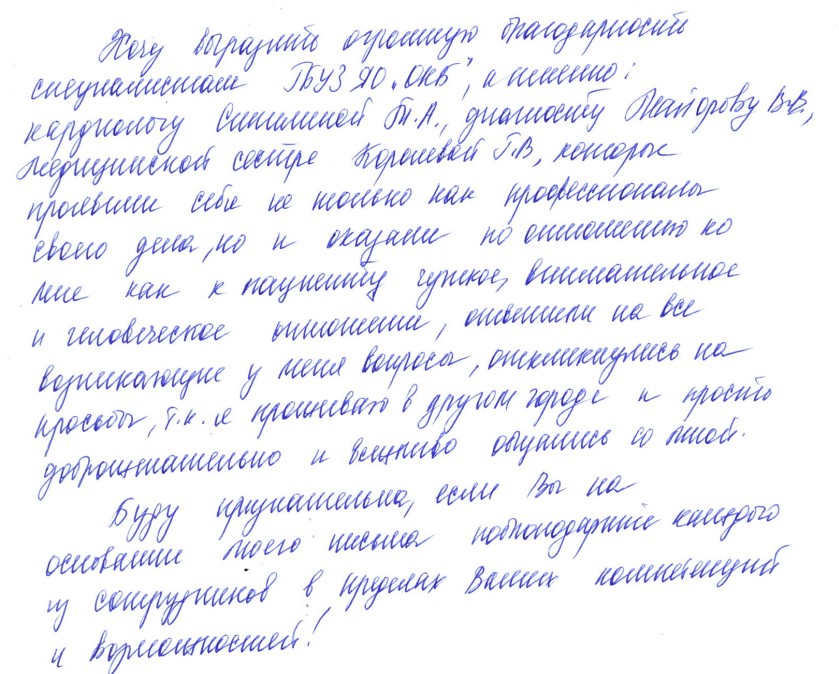 Хочу выразить огромную благодарность
специалистам ГБУЗ ЯО „ОКБ", а именно:
кардиологу Синициной Т.А., диагносту Майорову В.В.,
медицинской сестре Королевой Г.В, которые
проявили себя не только как профессионалы
своего дела, но и оказали по отношению ко
мне как к пациенту чуткое, внимательное
и человеческое отношение, ответили на все
возникающие у меня вопросы, откликнулись на
просьбы, т.к. я проживаю в другом городе и просто
доброжелательно и вежливо общались со мной.
Буду признательна, если Вы на
основании моего письма поблагодарите каждого
из сотрудников в пределах Ваших компетенций
и возможностей!